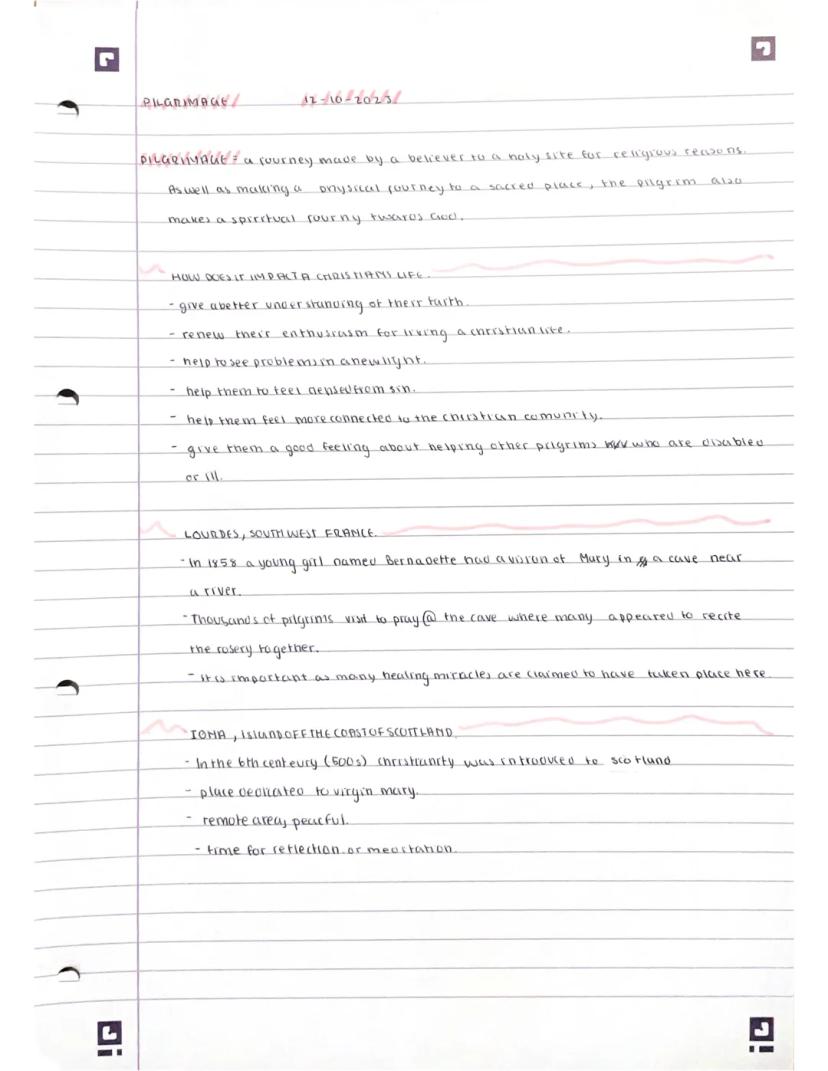 PILGRIMAGE 12-10-2023
PILGRIMAGE = a journey made by a believer to a holy site for religious reasons.
As well as making a physical journey to a sacred place, the pilgrim also
makes a spiritual journy twards God.
HOW DOES IT IMPACT A CHRISTIANS LIFE.
- give a better understanding of their faith.
- renew their enthusiasm for living a christian life.
- help to see problems in a new light.
- help them to feel clensed from sin.
- help them feel more connected to the christian comunity.
- give them a good feeling about helping other pilgrims who are disabled
or ill.
LOURDES, SOUTH WEST FRANCE.
- In 1858 a young girl named Bernadette had a vision of Mary in a cave near
a river.
- Thousands of pilgrims visit to pray @ the cave where many appeared to recite
the rosery together.
- it is important as many healing miracles are claimed to have taken place here.
IONA, island OFF THE COAST OF SCOTLAND
- In the 6th centeury (500s) christianity was introduced to scotland
- place dedicated to virgin mary.
- remote area, peacful.
- time for reflection or meditation.